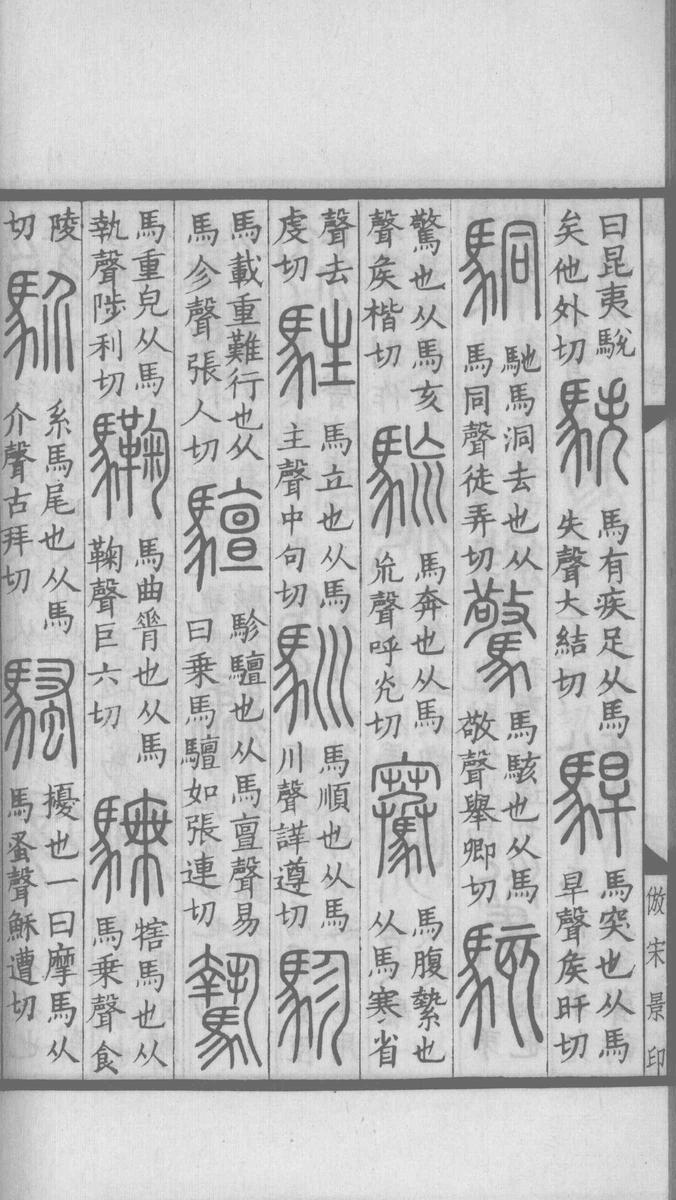 倣宋景印
曰昆夷駾
矣他外切
馬有疾足从馬
失聲大結切
駻
馬突也从馬
旱聲矦旰切
駧
馳馬洞去也从
馬同聲徒弄切
驚
馬駭也从馬
敬聲舉卿切
駭
驚也从馬亥
聲矦楷切
馬奔也从馬
㐬聲呼光切
騫
馬腹縶也
从馬寒省
聲去
虔切
駐
馬立也从馬
主聲中句切
馴
馬順也从馬
川聲詳遵切
駗
馬載重難行也从
馬㐱聲張人切
驙
駗驙也从馬亶聲易
曰乘馬驙如張連切
驇
馬重皃从馬
執聲陟利切
驧
馬曲脊也从馬
鞠聲巨六切
騬
犗馬也从
馬乘聲食
陵
切
系馬尾也从馬
介聲古拜切
騷
擾也一曰摩馬从
馬蚤聲穌遭切